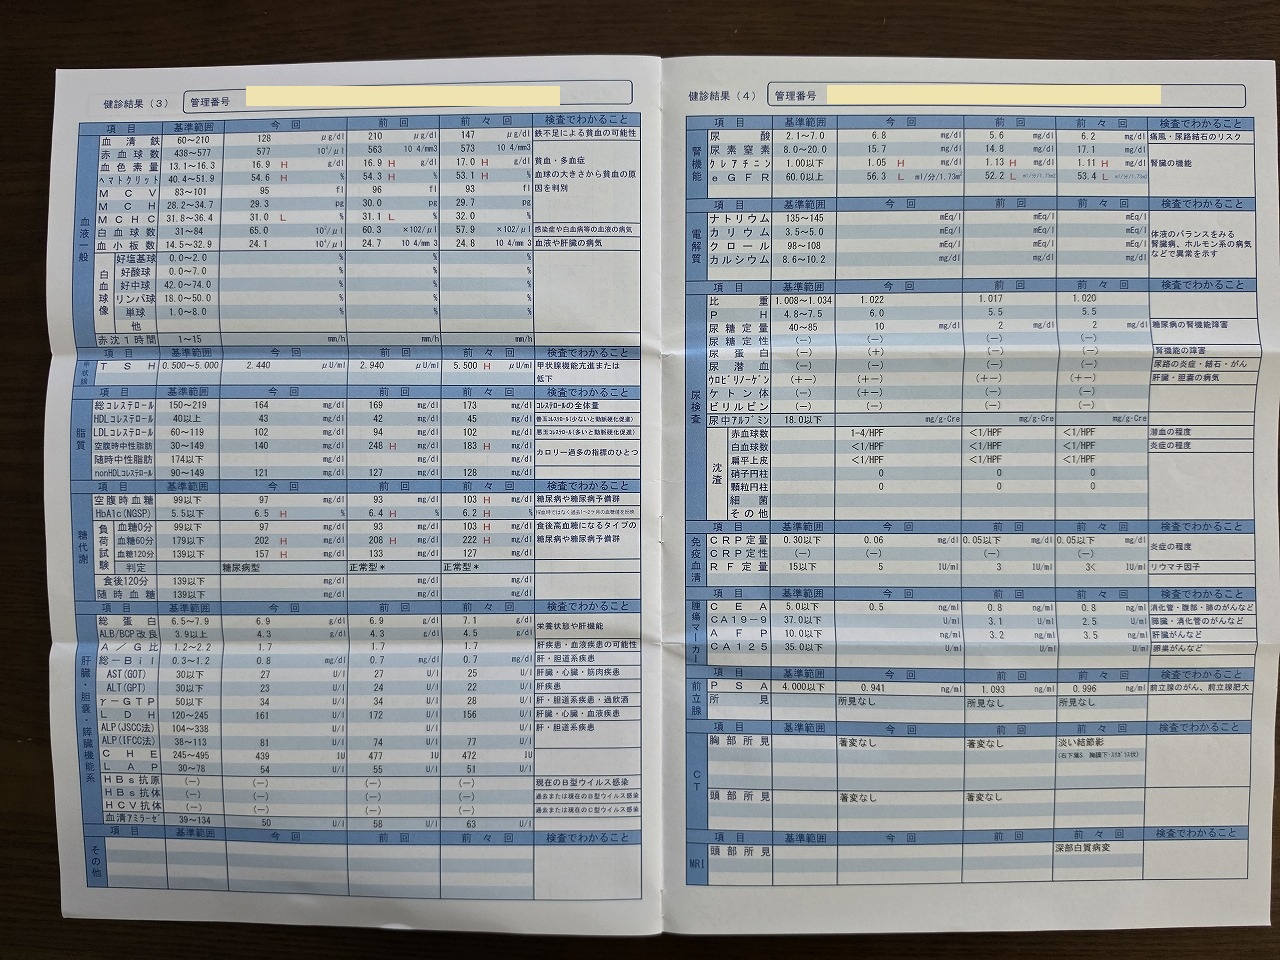 健診結果（３）
管理番号
項　目　基準範囲　今　回　前　回　前　々　回　検査でわかること
血液一般
血清鉄　60～210　128　μg/dl　210　μg/dl　147　μg/dl　鉄不足による貧血の可能性
赤血球数　438～577　577　10⁴/μl　563　10 4/mm3　573　10 4/mm3
血色素量　13.1～16.3　16.9　H　g/dl　16.9　H　g/dl　17.0　H　g/dl　貧血・多血症
ヘマトクリット　40.4～51.9　54.6　H　%　54.3　H　%　53.1　H　%　血球の大きさから貧血の原
ＭＣＶ　83～101　95　fl　96　fl　93　fl　因を判別
ＭＣＨ　28.2～34.7　29.3　pg　30.0　pg　29.7　pg
ＭＣＨＣ　31.8～36.4　31.0　L　%　31.1　L　%　32.0　%
白血球数　31～84　65.0　10²/μl　60.3　×102/μl　57.9　×102/μl　感染症や白血病等の血液の病気
血小板数　14.5～32.9　24.1　10⁴/μl　24.7　10 4/mm 3　24.8　10 4/mm 3　血液や肝臓の病気
白血球像
好塩基球　0.0～2.0　%　%　%
好酸球　0.0～7.0　%　%　%
好中球　42.0～74.0　%　%　%
リンパ球　18.0～50.0　%　%　%
単球　1.0～8.0　%　%　%
他
赤沈１時間　1～15　mm/h　mm/h　mm/h
項　目　基準範囲　今　回　前　回　前　々　回　検査でわかること
甲状腺
ＴＳＨ　0.500～5.000　2.440　μU/ml　2.940　μU/ml　5.500　H　μU/ml　甲状腺機能亢進または
低下
項　目　基準範囲　今　回　前　回　前　々　回　検査でわかること
脂質
総コレステロール　150～219　164　mg/dl　169　mg/dl　173　mg/dl　コレステロールの全体量
HDLコレステロール　40以上　43　mg/dl　42　mg/dl　45　mg/dl　善玉コレステロール(少ないと動脈硬化促進)
LDLコレステロール　60～119　102　mg/dl　94　mg/dl　102　mg/dl　悪玉コレステロール(多いと動脈硬化促進)
空腹時中性脂肪　30～149　140　mg/dl　248　H　mg/dl　183　H　mg/dl　カロリー過多の指標のひとつ
随時中性脂肪　174以下　mg/dl　mg/dl　mg/dl
nonHDLコレステロール　90～149　121　mg/dl　127　mg/dl　128　mg/dl
項　目　基準範囲　今　回　前　回　前　々　回　検査でわかること
糖代謝
空腹時血糖　99以下　97　mg/dl　93　mg/dl　103　H　mg/dl　糖尿病や糖尿病予備群
HbA1c(NGSP)　5.5以下　6.5　H　%　6.4　H　%　6.2　H　%
負荷試験
血糖0分　99以下　97　mg/dl　93　mg/dl　103　H　mg/dl　食後高血糖になるタイプの
血糖60分　179以下　202　H　mg/dl　208　H　mg/dl　222　H　mg/dl　糖尿病や糖尿病予備群
血糖120分　139以下　157　H　mg/dl　133　mg/dl　127　mg/dl
判定　糖尿病型　正常型＊　正常型＊
食後120分　139以下　mg/dl　mg/dl　mg/dl
随時血糖　139以下　mg/dl　mg/dl　mg/dl
項　目　基準範囲　今　回　前　回　前　々　回　検査でわかること
肝臓・胆嚢・膵臓機能系
総蛋白　6.5～7.9　6.9　g/dl　6.9　g/dl　7.1　g/dl　栄養状態や肝機能
ALB/BCP改良　3.9以上　4.3　g/dl　4.3　g/dl　4.5　g/dl
Ａ／Ｇ比　1.2～2.2　1.7　1.7　1.7　肝疾患・血液疾患の可能性
総－Ｂｉｌ　0.3～1.2　0.8　mg/dl　0.7　mg/dl　0.7　mg/dl　肝・胆道系疾患
AST(GOT)　30以下　27　U/l　27　U/l　25　U/l　肝臓・心臓・筋肉疾患
ALT(GPT)　30以下　23　U/l　24　U/l　22　U/l　肝疾患
γ－ＧＴＰ　50以下　34　U/l　34　U/l　28　U/l　肝・胆道系疾患・過飲酒
ＬＤＨ　120～245　161　U/l　172　U/l　156　U/l　肝臓・心臓・血液疾患
ALP(JSCC法)　104～338　U/l　U/l　U/l　肝・胆道系疾患
ALP(IFCC法)　38～113　81　U/l　74　U/l　77　U/l
ＣＨＥ　245～495　439　IU　477　IU　472　IU
ＬＡＰ　30～78　54　U/l　55　U/l　51　U/l
ＨＢｓ抗原　(－)　(－)　(－)　(－)　現在のＢ型ウイルス感染
ＨＢｓ抗体　(－)　(－)　(－)　(－)　過去または現在のＢ型ウイルス感染
ＨＣＶ抗体　(－)　(－)　(－)　(－)　過去または現在のＣ型ウイルス感染
血清アミラーゼ　39～134　50　U/l　58　U/l　63　U/l
項　目　基準範囲　今　回　前　回　前　々　回　検査でわかること
その他
健診結果（４）
管理番号
項　目　基準範囲　今　回　前　回　前　々　回　検査でわかること
腎機能
尿酸　2.1～7.0　6.8　mg/dl　5.6　mg/dl　6.2　mg/dl　痛風・尿路結石のリスク
尿素窒素　8.0～20.0　15.7　mg/dl　14.8　mg/dl　17.1　mg/dl
クレアチニン　1.00以下　1.05　H　mg/dl　1.13　H　mg/dl　1.11　H　mg/dl　腎臓の機能
ｅＧＦＲ　60.0以上　56.3　L　ml/分/1.73㎡　52.2　L　ml/分/1.73㎡　53.4　L　ml/分/1.73㎡
項　目　基準範囲　今　回　前　回　前　々　回　検査でわかること
電解質
ナトリウム　135～145　mEq/l　mEq/l　mEq/l
カリウム　3.5～5.0　mEq/l　mEq/l　mEq/l　体液のバランスをみる
クロール　98～108　mEq/l　mEq/l　mEq/l　腎臓病、ホルモン系の病気
カルシウム　8.6～10.2　mg/dl　mg/dl　mg/dl　などで異常を示す
項　目　基準範囲　今　回　前　回　前　々　回　検査でわかること
尿検査
比重　1.008～1.034　1.022　1.017　1.020
ＰＨ　4.8～7.5　6.0　5.5　5.5
尿糖定量　40～85　10　mg/dl　2　mg/dl　2　mg/dl　糖尿病の腎機能障害
尿糖定性　(－)　(－)　(－)　(－)
尿蛋白　(－)　(＋)　(－)　(－)　腎機能の障害
尿潜血　(－)　(－)　(－)　(－)　尿路の炎症・結石・がん
ウロビリノーゲン　(＋－)　(＋－)　(＋－)　(＋－)　肝臓・胆嚢の病気
ケトン体　(－)　(＋－)　(－)　(－)
ビリルビン　(－)　(－)　(－)　(－)
尿中アルブミン　18.0以下　mg/g･Cre　mg/g･Cre　mg/g･Cre
沈渣
赤血球数　1-4/HPF　<1/HPF　<1/HPF　潜血の程度
白血球数　<1/HPF　<1/HPF　<1/HPF　炎症の程度
扁平上皮　<1/HPF　<1/HPF　<1/HPF
硝子円柱　0　0　0
顆粒円柱　0　0　0
細菌
その他
項　目　基準範囲　今　回　前　回　前　々　回　検査でわかること
免疫血清
ＣＲＰ定量　0.30以下　0.06　mg/dl　0.05以下　mg/dl　0.05以下　mg/dl　炎症の程度
ＣＲＰ定性　(－)　(－)　(－)　(－)
ＲＦ定量　15以下　5　IU/ml　3　IU/ml　3<　IU/ml　リウマチ因子
項　目　基準範囲　今　回　前　回　前　々　回　検査でわかること
腫瘍マーカー
ＣＥＡ　5.0以下　0.5　ng/ml　0.8　ng/ml　0.8　ng/ml　消化管・腹部・肺のがんなど
ＣＡ１９-９　37.0以下　U/ml　3.1　U/ml　2.5　U/ml　膵臓・消化管のがんなど
ＡＦＰ　10.0以下　ng/ml　3.2　ng/ml　3.5　ng/ml　肝臓がんなど
ＣＡ１２５　35.0以下　U/ml　U/ml　U/ml　卵巣がんなど
項　目　基準範囲　今　回　前　回　前　々　回　検査でわかること
前立腺
ＰＳＡ　4.000以下　0.941　ng/ml　1.093　ng/ml　0.996　ng/ml　前立腺のがん、前立腺肥大
所見　所見なし　所見なし　所見なし
項　目　基準範囲　今　回　前　回　前　々　回　検査でわかること
ＣＴ
胸部所見　著変なし　著変なし　淡い結節影
頭部所見　著変なし　著変なし
項　目　基準範囲　今　回　前　回　前　々　回　検査でわかること
MRI
頭部所見　深部白質病変